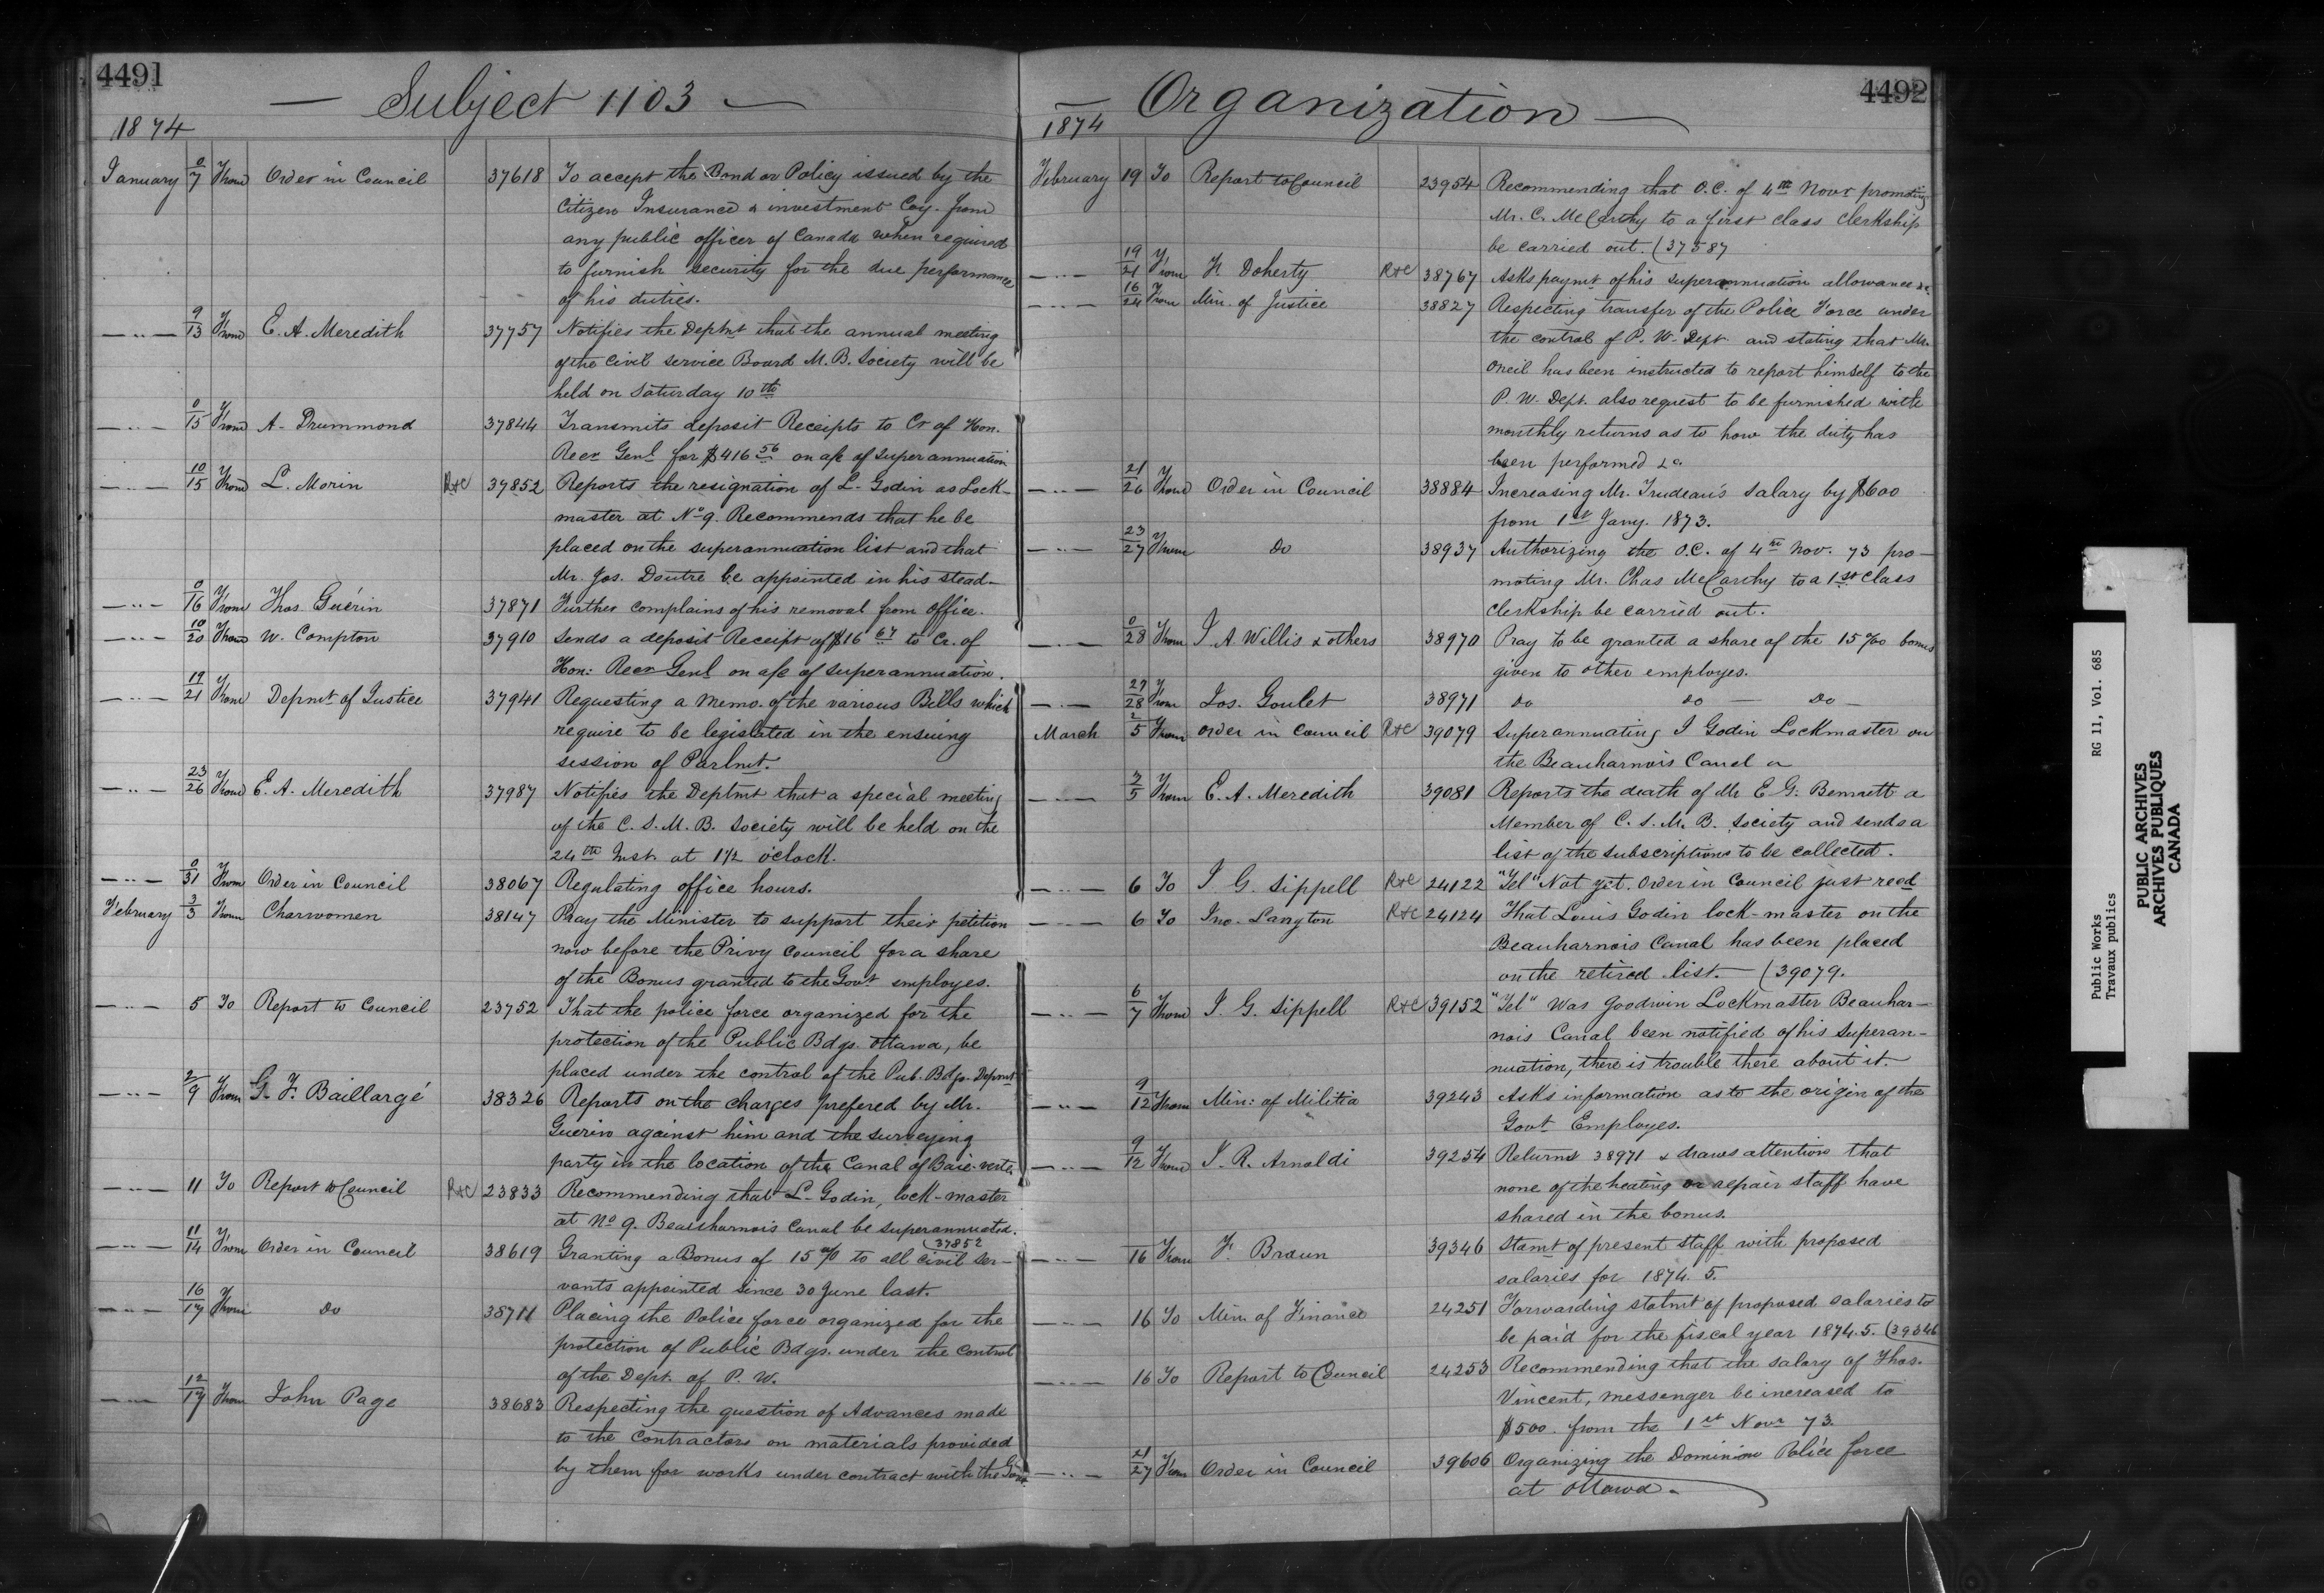 4491
— Subject 1103 —
1874
January 0/7 From Order in Council 37618 To accept the Bond or Policy issued by the
Citizen Insurance & investment Coy. from
any public officer of Canada when required
to furnish security for the due performance
of his duties.
—"— 9/13 From E. A. Meredith 37757 Notifies the Deptmt that the annual meeting
of the Civil Service Board M. B. Society will be
held on Saturday 10th
—"— 0/15 From A. Drummond 37844 Transmits deposit Receipts to Cr of Hon.
Recr Genl for $416 56 on a/c of superannuation
—"— 10/15 From L. Morin R&C 37852 Reports the resignation of L. Godin as Lock-
master at No 9. Recommends that he be
placed on the superannuation list and that
Mr. Jos. Doutre be appointed in his stead—
—"— 0/16 From Thos. Guérin 37871 Further complains of his removal from office.
—"— 10/20 From W. Compton 37910 Sends a deposit Receipt of $16 67 to Cr. of
Hon: Recr Genl on a/c of superannuation.
—"— 19/21 From Depmt of Justice 37941 Requesting a Memo. of the various Bills which
require to be legislated in the ensuing
session of Parlmt.
—"— 23/26 From E. A. Meredith 37987 Notifies the Deptmt that a special meeting
of the C. S. M. B. Society will be held on the
24th Inst. at 1 1/2 o'clock.
—"— 0/31 From Order in Council 38067 Regulating office hours.
February 3/3 From Charwomen 38147 Pray the Minister to support their petition
now before the Privy Council for a share
of the Bonus granted to the Govt employes.
—"— 5 To Report to Council 23752 That the police force organized for the
protection of the Public Bdgs. Ottawa, be
placed under the control of the Pub. Bdgs. Depmt
—"— 2/9 From G. F. Baillargé 38326 Reports on the charges prefered by Mr.
Guerin against him and the surveying
party in the location of the Canal of Baie-verte
—"— 11 To Report to Council R&C 23833 Recommending that L. Godin, lock-master
at No 9. Beauharnois Canal be superannuated.
(37852
—"— 11/14 From Order in Council 38619 Granting a Bonus of 15 % to all civil ser-
vants appointed since 30 June last.
—"— 16/17 From Do 38711 Placing the Police force organized for the
protection of Public Bdgs. under the control
of the Dept. of P. W.
—"— 12/17 From John Page 38683 Respecting the question of Advances made
to the Contractors on materials provided
by them for works under contract with the Govt.
4492
— Organization —
1874
February 19 To Report to Council 23954 Recommending that O.C. of 4th Novr promoting
Mr. C. McCarthy to a first class clerkship
be carried out. (37587
—"— 19/21 From H. Doherty R&C 38767 Asks paymt of his superannuation allowance &c.
—"— 16/24 From Min. of Justice 38827 Respecting transfer of the Police Force under
the control of P. W. Dept. and stating that Mr.
Oneil has been instructed to report himself to the
P. W. Dept. also request to be furnished with
monthly returns as to how the duty has
been performed &c.
—"— 21/26 From Order in Council 38884 Increasing Mr. Trudeau's salary by $600
from 1st Jany. 1873.
—"— 23/27 From Do 38937 Authorizing the O.C. of 4th Nov. 73 pro-
moting Mr. Chas McCarthy to a 1st class
clerkship be carried out.
—"— 0/28 From J. A. Willis & others 38970 Pray to be granted a share of the 15 % bonus
given to other employes.
—"— 27/28 From Jos. Goulet 38971 do do — Do —
March 2/5 From Order in Council R&C 39079 Superannuating J Godin Lockmaster on
the Beauharnois Canal
—"— 3/5 From E. A. Meredith 39081 Reports the death of Mr E. G. Bennett a
Member of C. S. M. B. Society and sends a
list of the subscriptions to be collected.
—"— 6 To J. G. Sippell R&C 24122 "Tel" Not yet. Order in Council just recd
—"— 6 To Jno. Langton R&C 24124 That Louis Godin lock-master on the
Beauharnois Canal has been placed
on the retired list. — (39079.
—"— 6/7 From J. G. Sippell R&C 39152 "Tel" Was Goodwin Lockmaster Beauhar-
nois Canal been notified of his superan-
nuation, there is trouble there about it.
—"— 9/12 From Min: of Militia 39243 Asks information as to the origin of the
Govt Employes.
—"— 9/12 From J. R. Arnoldi 39254 Returns 38971 & draws attention that
none of the heating or repair staff have
shared in the bonus.
—"— /16 From F. Braun 39346 Stamt of present staff with proposed
salaries for 1874. 5.
—"— 16 To Min. of Finance 24251 Forwarding statmt of proposed salaries to
be paid for the fiscal year 1874. 5. (39346
—"— 16 To Report to Council 24253 Recommending that the salary of Thos.
Vincent, messenger be increased to
$500. from the 1st Novr 73.
—"— 21/27 From Order in Council 39606 Organizing the Dominion Police force
at Ottawa.
Public Works RG 11, Vol. 685
Travaux publics
PUBLIC ARCHIVES
ARCHIVES PUBLIQUES
CANADA